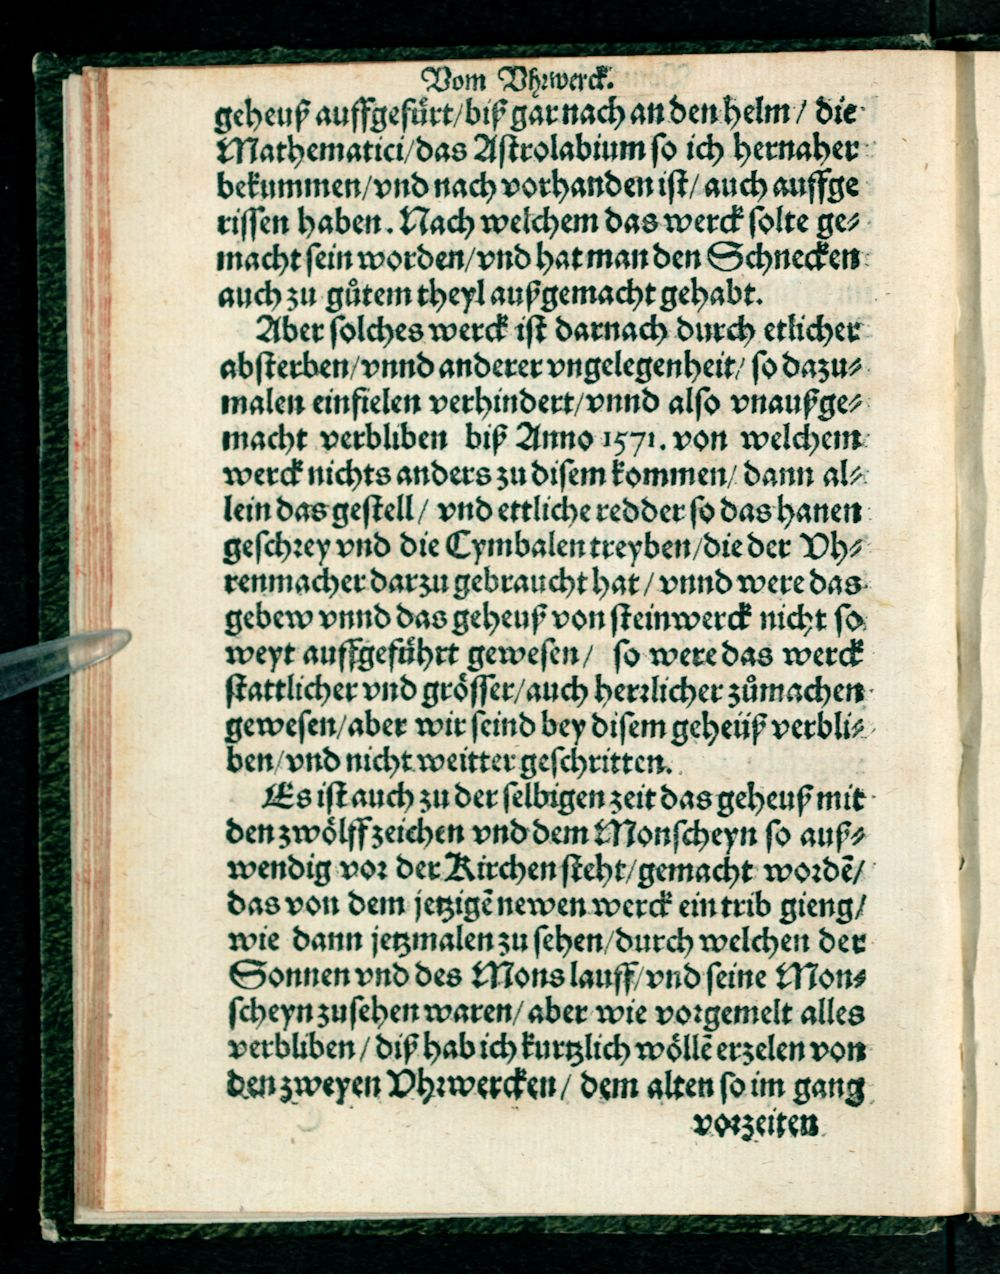 Vom Vhrwerck.
geheuß auffgefürt/biß gar nach an den helm / die
Mathematici/das Astrolabium so ich hernaher
bekummen/vnd nach vorhanden ist/auch auffge
rissen haben. Nach welchem das werck solte ge⸗
macht sein worden/vnd hat man den Schnecken
auch zu gůtem theyl außgemacht gehabt.
Aber solches werck ist darnach durch etlicher
absterben/vnnd anderer vngelegenheit/ so dazu⸗
malen einfielen verhindert/vnnd also vnaußge⸗
macht verbliben biß Anno 1571. von welchem
werck nichts anders zu disem kommen/ dann al⸗
lein das gestell/ vnd ettliche redder so das hanen
geschrey vnd die Cymbalen treyben/die der Vh⸗
renmacher darzu gebraucht hat/ vnnd were das
gebew vnnd das geheuß von steinwerck nicht so
weyt auffgeführt gewesen/ so were das werck
stattlicher vnd grösser/auch herrlicher zůmachen
gewesen/aber wir seind bey disem geheüß verbli⸗
ben/vnd nicht weitter geschritten.
Es ist auch zu der selbigen zeit das geheuß mit
den zwölff zeichen vnd dem Monscheyn so auß⸗
wendig vor der Kirchen steht/gemacht wordē/
das von dem jetzigē newen werck ein trib gieng/
wie dann jetzmalen zu sehen/durch welchen der
Sonnen vnd des Mons lauff/vnd seine Mon⸗
scheyn zusehen waren/ aber wie vorgemelt alles
verbliben/ diß hab ich kurtzlich wöllē erzelen von
den zweyen Vhrwercken/ dem alten so im gang
vorzeiten